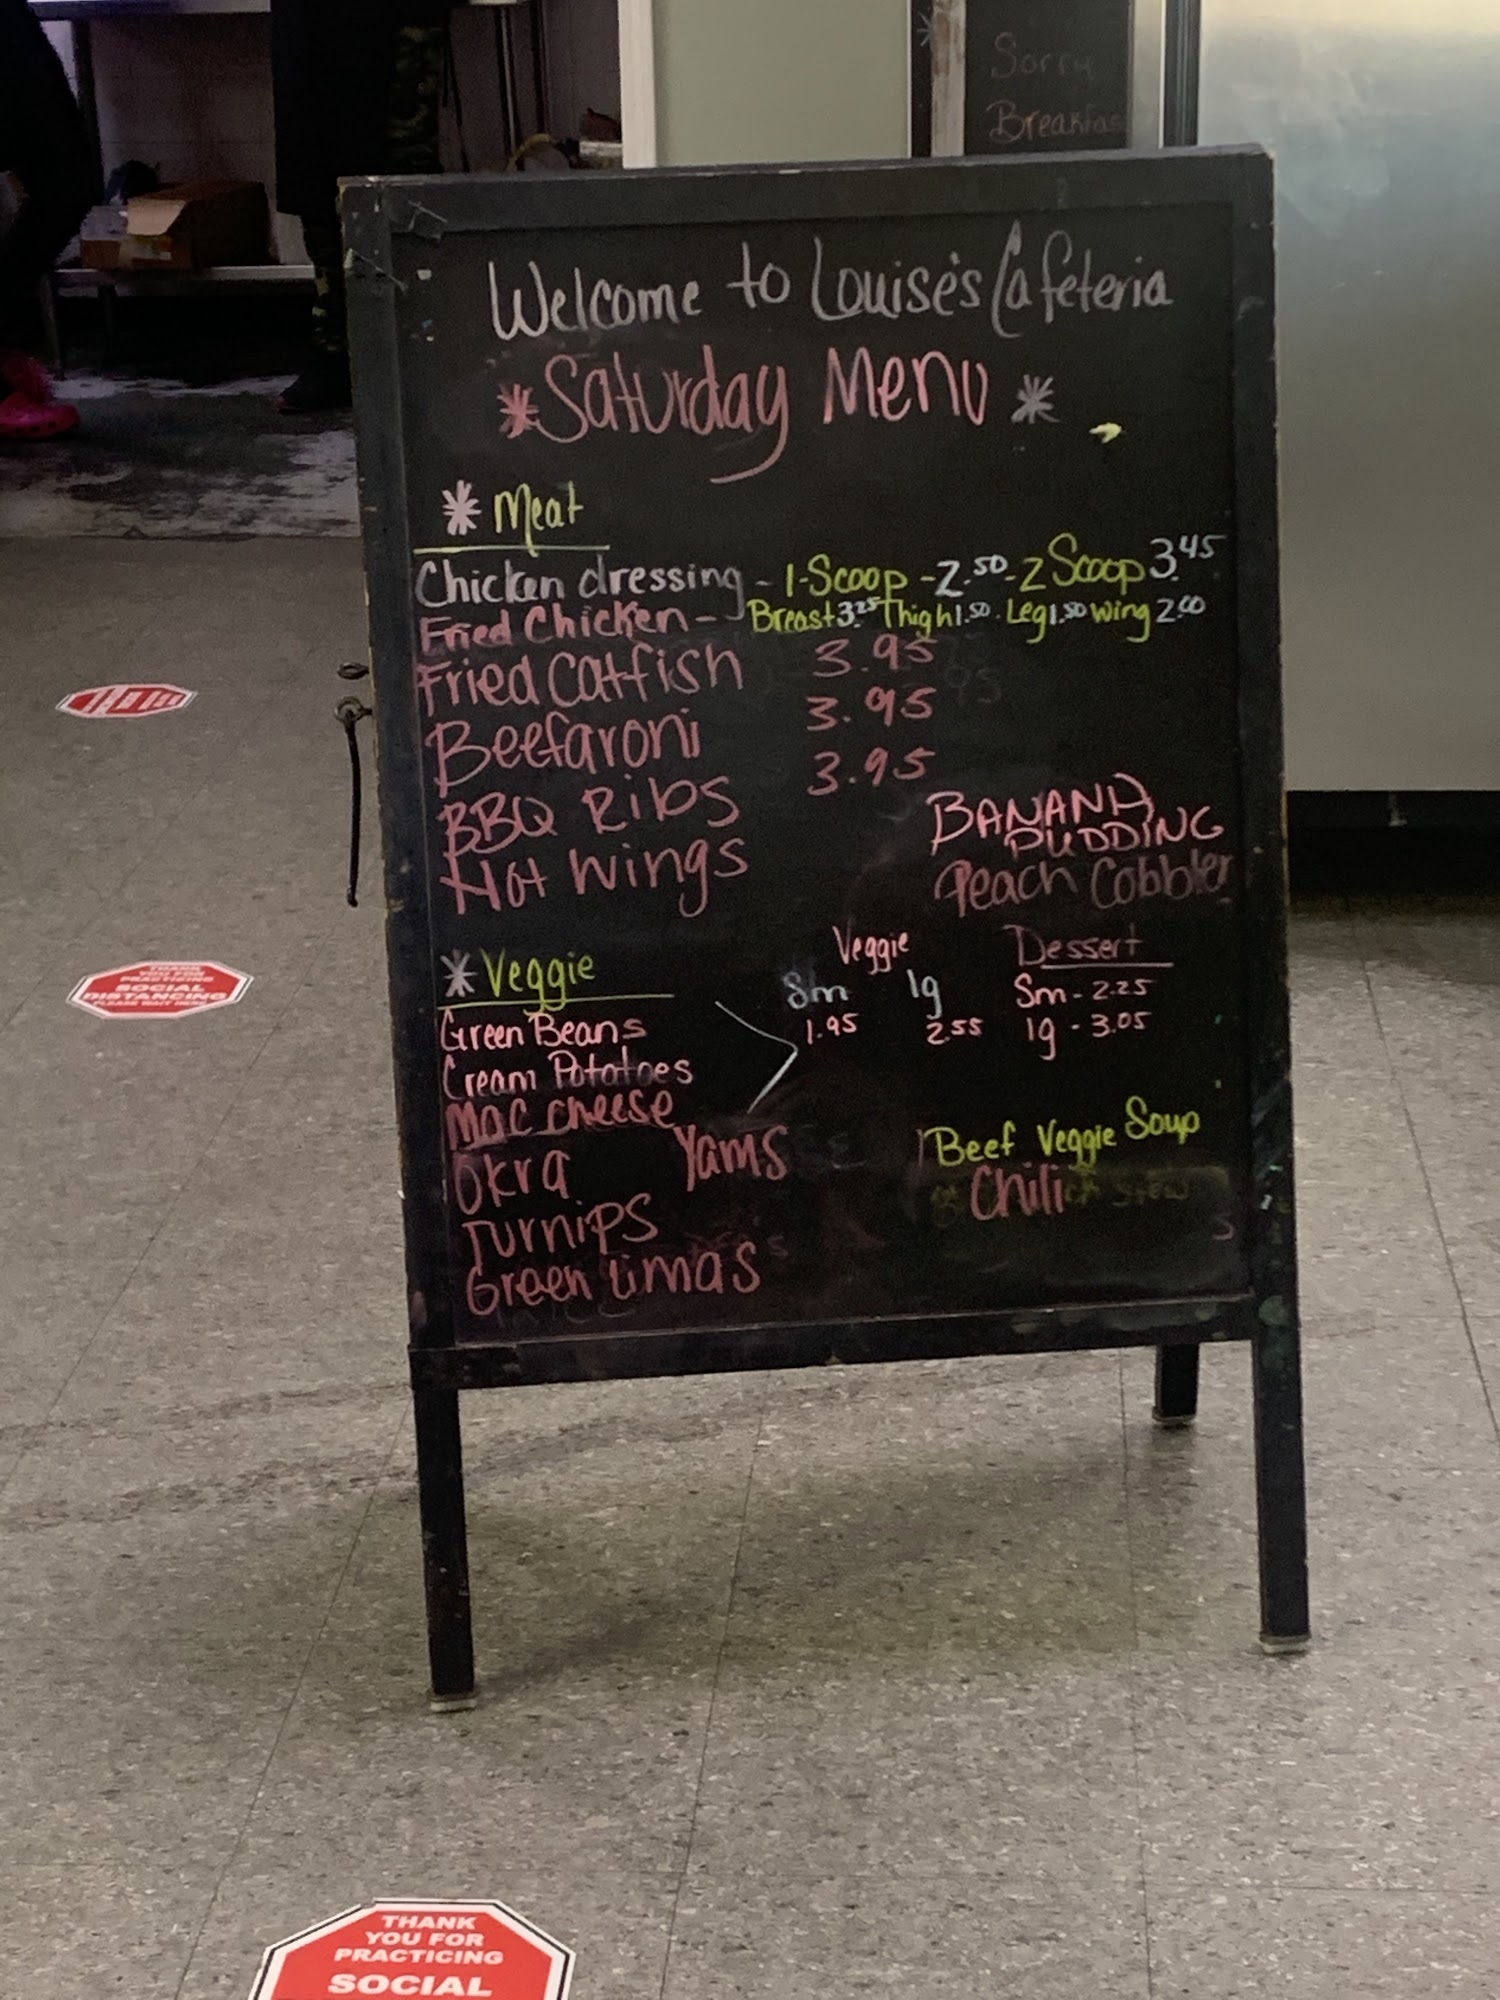 Sorry
Breakfast
Welcome to Louise's Cafeteria
*Saturday Menu*
* Meat
Chicken dressing - 1-Scoop - 2.50 - 2 Scoop 3.45
Fried Chicken - Breast 3.25 Thigh 1.50. Leg 1.50 Wing 2.00
Fried Catfish 3.95
Beefaroni 3.95
BBQ Ribs 3.95
Hot Wings
BANANA
PUDDING
Peach Cobbler
* Veggie
Green Beans
Cream Potatoes
Mac cheese
Okra Yams
Turnips
Green Limas
Veggie
Sm lg
1.95 2.55
Dessert
Sm - 2.25
lg - 3.05
Beef Veggie Soup
Chili
THANK
YOU FOR
PRACTICING
SOCIAL
DISTANCING
THANK
YOU FOR
PRACTICING
SOCIAL